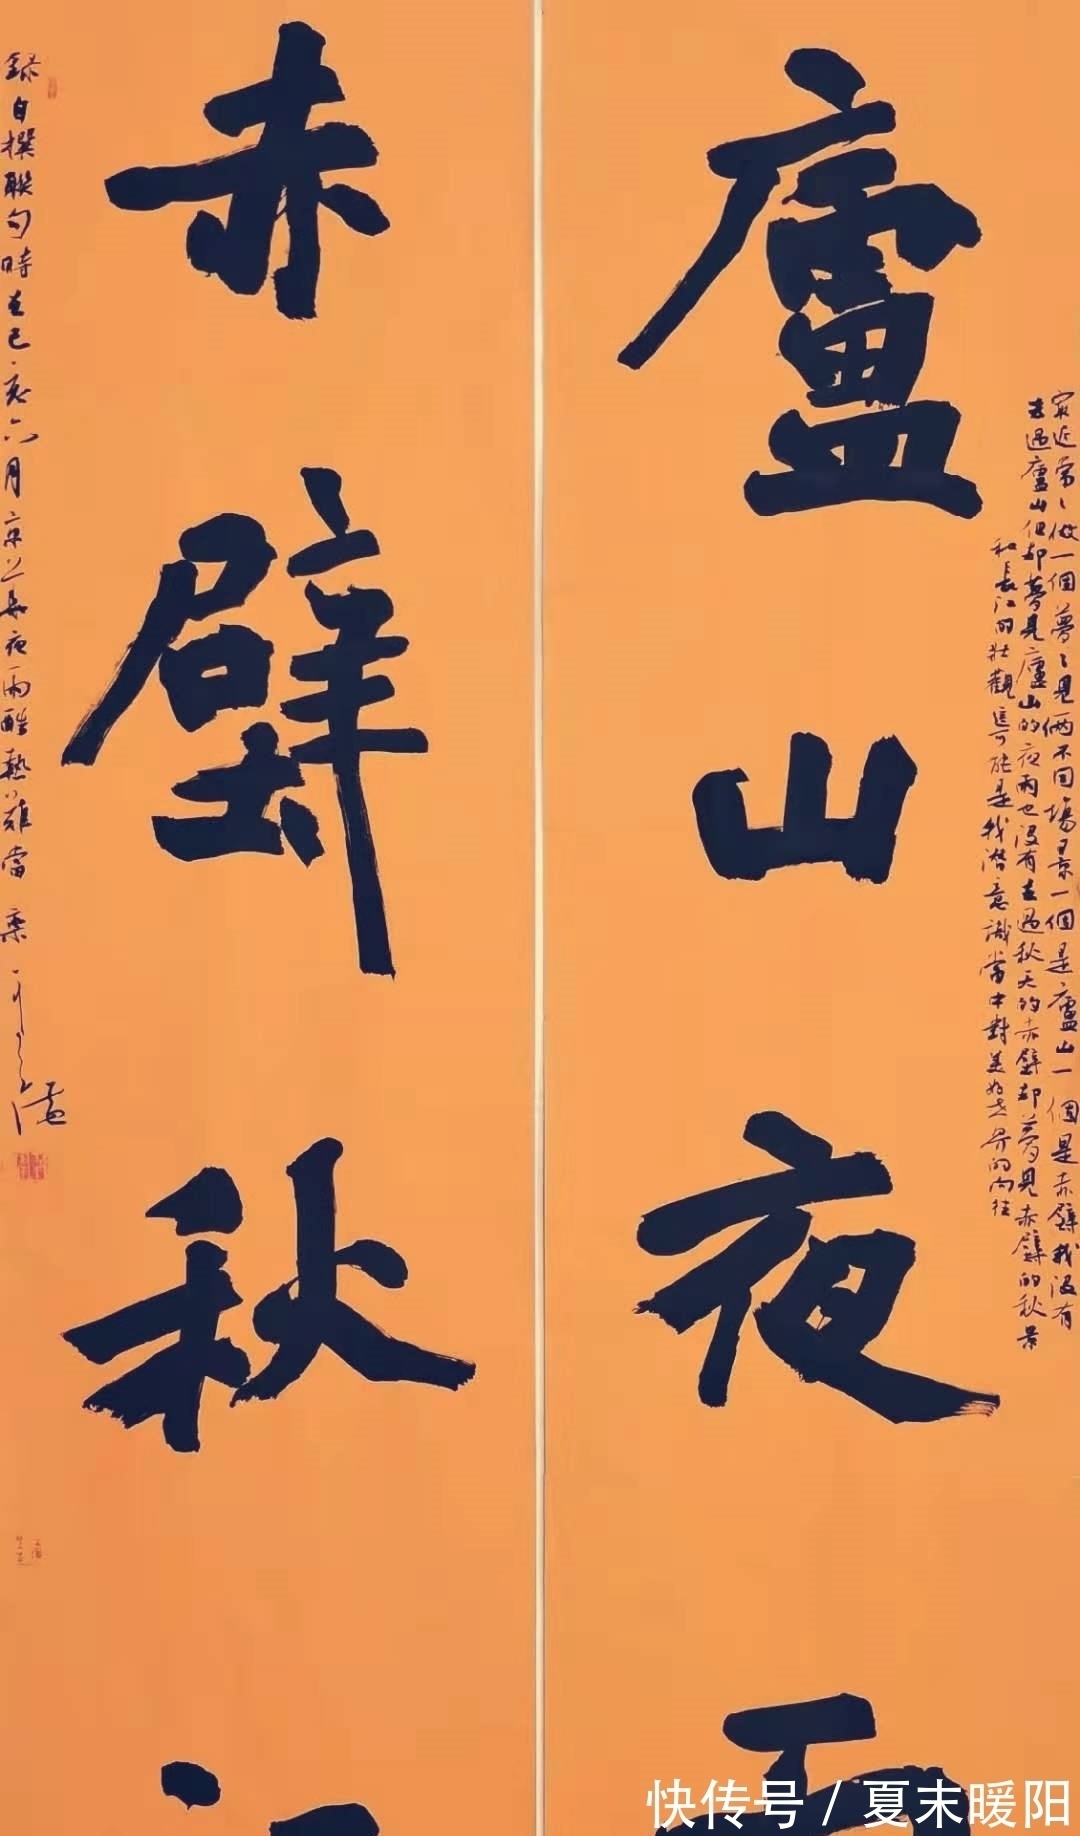 廬山夜
最近常々做一個夢々見兩不同場景一個是廬山一個是赤壁我沒有
去過廬山但却夢見廬山的夜雨也沒有去過秋天的赤壁却夢見赤壁的秋景
和長江的壯觀這可能是我潛意識當中對美好世界的向往
赤壁秋
錄自撰聯句時在己亥六月京
夜雨酷熱難當
快传号 / 夏末暖阳